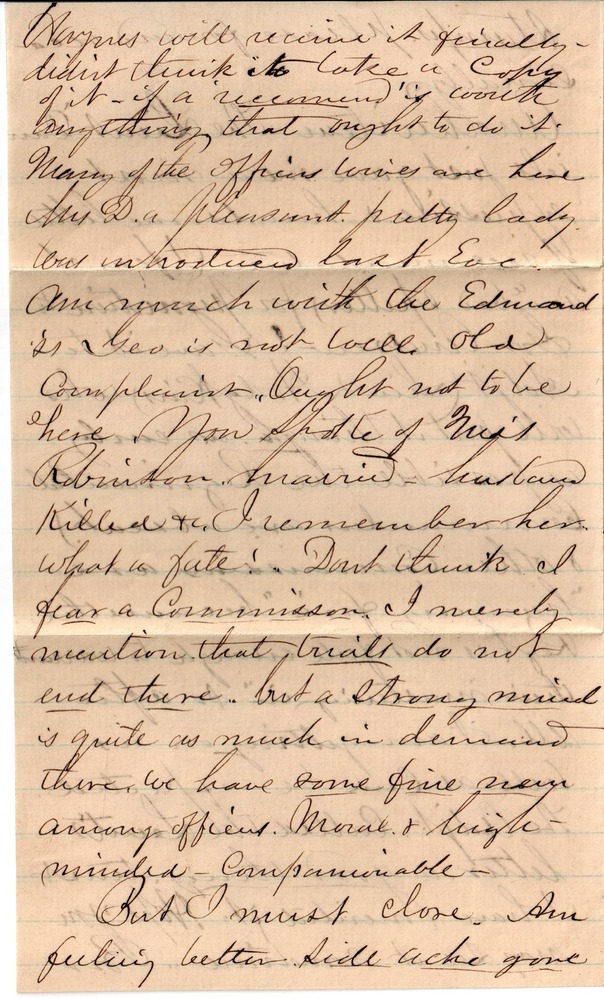 Haynes will receive it finally -
didn't think to take a Copy
of it - if a 'recomend' is worth
anything, that ought to do it.
Many of the officers wives are here
Mrs D. a pleasant pretty lady
was introduced last Eve.
Am much with the Edmand
's Geo is not well. Old
Complaint. Ought not to be
here. You spoke of Miss
Robinson. married - husband
Killed &c. I remember her.
What a fate! Dont think I
fear a Commisson. I merely
mention that trials do not
end there.. but a strong mind
is quite as much in demand
there. we have some fine men
among officers. Moral & high-
minded - Companionable -
But I must close. Am
feeling better side ache gone